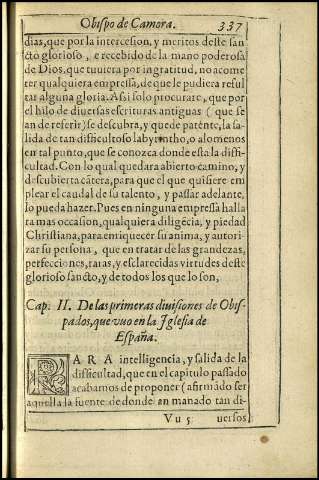 Obispo de Çamora. 337
dias, que por la intercesion, y meritos deste san
cto glorioso, e recebido de la mano poderosa
de Dios, que tuuiera por ingratitud, no acome
ter qualquiera empressa, de que le pudiera resul
tar alguna gloria. Asi solo procurare, que por
el hilo de diuersas escrituras antiguas ( que se
an de referir) se descubra, y quede patente, la sa-
lida de tan dificultoso labyrintho, o alomenos
en tal punto, que se conozca donde esta la difi-
cultad. Con lo qual quedara abierto camino, y
descubierta cãtera, para que el que quisiere em
plear el caudal de su talento, y passar adelante,
lo pueda hazer. Pues en ninguna empressa halla
ra mas occasion, qualquiera diligẽcia, y piedad
Christiana, para enriquecer su anima, y autori-
zar su persona, que en tratar de las grandezas,
perfecciones, raras, y esclarecidas virtudes deste
glorioso sancto, y de todos los que lo son,
Cap. II. De las primeras diuisiones de Obis-
pados, que vuo en la Iglesia de
España.
PARA intelligencia, y salida de la
dificultad, que en el capitulo passado
acabamos de proponer (afirmãdo ser
aquella la fuente de donde an manado tan di-
Vu 5 uersos